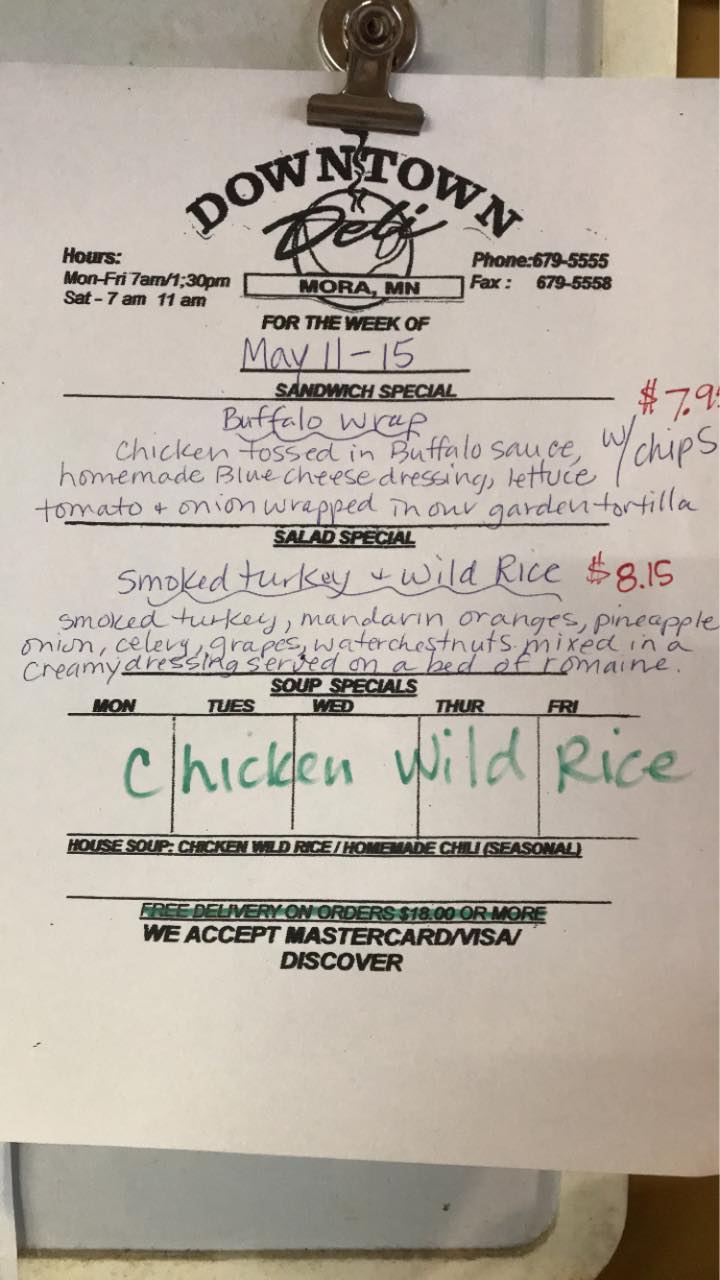 DOWNTOWN
Deli
MORA, MN
Hours:
Mon-Fri 7am/1;30pm
Sat - 7 am 11 am
Phone:679-5555
Fax : 679-5558
FOR THE WEEK OF
May 11-15
SANDWICH SPECIAL
Buffalo Wrap
$7.95
w/ chips
Chicken tossed in Buffalo sauce,
homemade Blue cheese dressing, lettuce
tomato + onion wrapped in our garden tortilla
SALAD SPECIAL
Smoked turkey + Wild Rice $8.15
smoked turkey, mandarin oranges, pineapple
onion, celery, grapes, waterchestnuts mixed in a
Creamy dressing served on a bed of romaine.
SOUP SPECIALS
MON TUES WED THUR FRI
Chicken Wild Rice
HOUSE SOUP: CHICKEN WILD RICE / HOMEMADE CHILI (SEASONAL)
FREE DELIVERY ON ORDERS $18.00 OR MORE
WE ACCEPT MASTERCARD/VISA/
DISCOVER